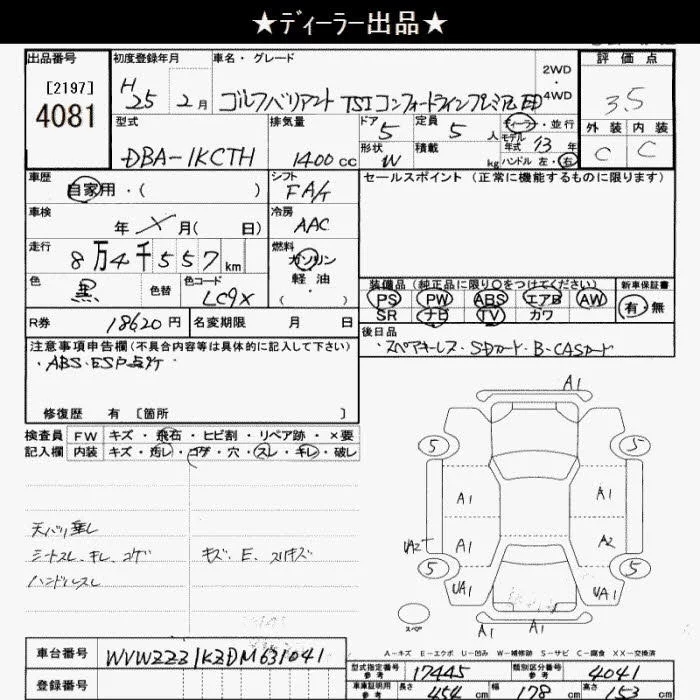 ★ディーラー出品★
出品番号 [2197] 4081
初度登録年月 H25 2月
車名・グレード ゴルフバリアント TSIコンフォートラインプレミアムED
2WD・4WD
評価点 3.5
外装 C 内装 C
型式 DBA-1KCTH
排気量 1400cc
ドア 5 定員 5人
形状 W 積載 kg
ディーラー・並行
モデル年式 13年
ハンドル 左・右
車歴 自家用・( )
シフト FA/T
セールスポイント(正常に機能するものに限ります)
車検 年 月( 日)
冷房 AAC
走行 8万4千557km
燃料 ガソリン 軽油・( )
色 黒 色替 色コード LC9X
装備品(純正品に限り〇をつけてください) 新車保証書
PS PW ABS エアB AW 有・無
SR ナビ TV カワ
R券 18620円 名変期限 月 日
後日品 ・スペアキーレス・SDカード・B-CASカード
注意事項申告欄(不具合内容等は具体的に記入して下さい)
・ABS・ESP点灯・
修復歴 有 [箇所 ]
検査員 FW キズ・飛石・ヒビ割・リペア跡・×要
記入欄 内装 キズ・汚レ・コゲ・穴・スレ・キレ・破レ
天バリ垂レ
シートスレ、キレ、コゲ キズ、E、スリキズ
ハンドルスレ
A1
5 5
A1 A1
UA2 A1 A2
5 5
UA1 UA1
スペア
A1 A1
A-キズ E-エクボ U-凹み W-補修跡 S-サビ C-腐食 XX-交換済
車台番号 WVWZZZ1KZDM631041
型式指定番号 参考 17445 類別区分番号 参考 4041
登録番号
車庫証明用 参考 長さ 454cm 幅 178cm 高さ 153cm